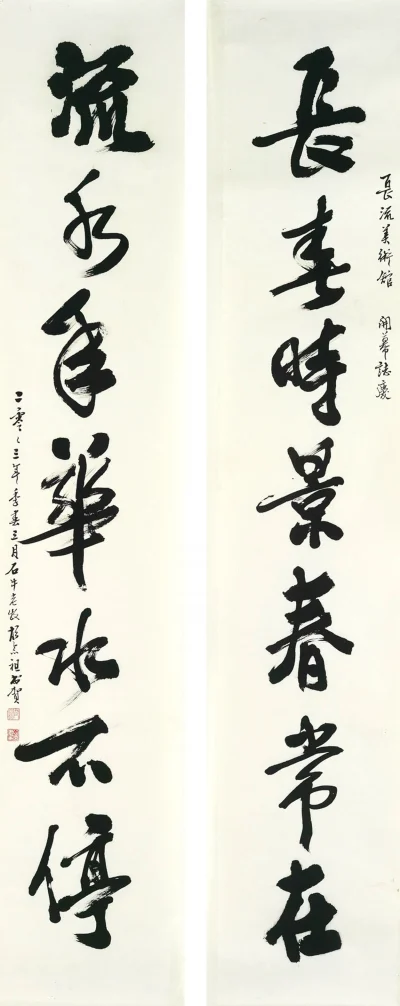 長流美術館 開幕誌慶
長春時景春常在
流水年華水不停
二零〇三年季春三月石牛老 祖 賀